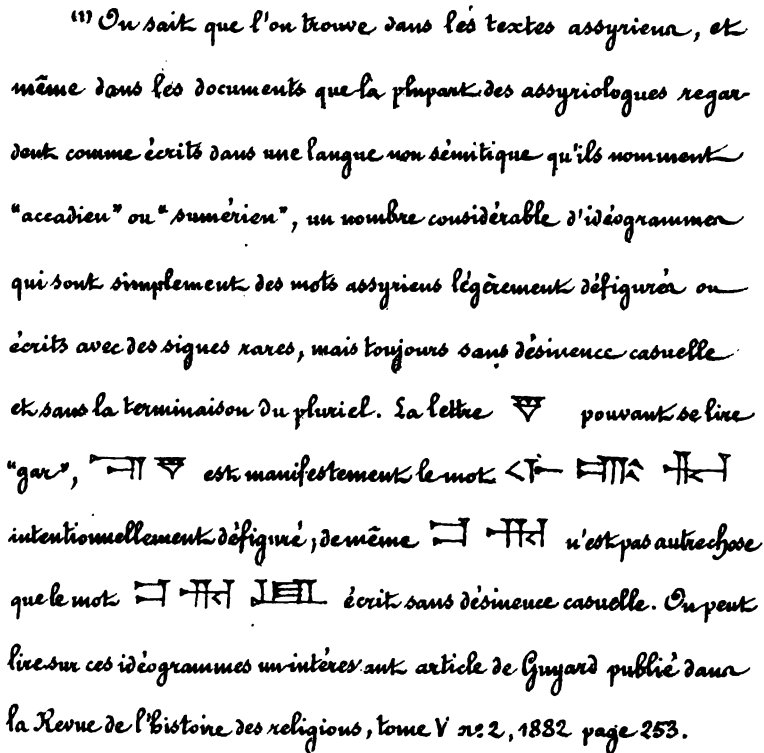 (1) On sait que l'on trouve dans les textes assyriens, et
même dans les documents que la plupart des assyriologues regar-
dent comme écrits dans une langue non sémitique qu'ils nomment
"accadien" ou "sumérien", un nombre considérable d'idéogrammes
qui sont simplement des mots assyriens légèrement défigurés ou
écrits avec des signes rares, mais toujours sans désinence casuelle
et sans la terminaison du pluriel. La lettre pouvant se lire
"gar", est manifestement le mot
intentionnellement défiguré; de même n'est pas autre chose
que le mot écrit sans désinence casuelle. On peut
lire sur ces idéogrammes un intéressant article de Guyard publié dans
la Revue de l'histoire des religions, tome V nº 2, 1882 page 253.